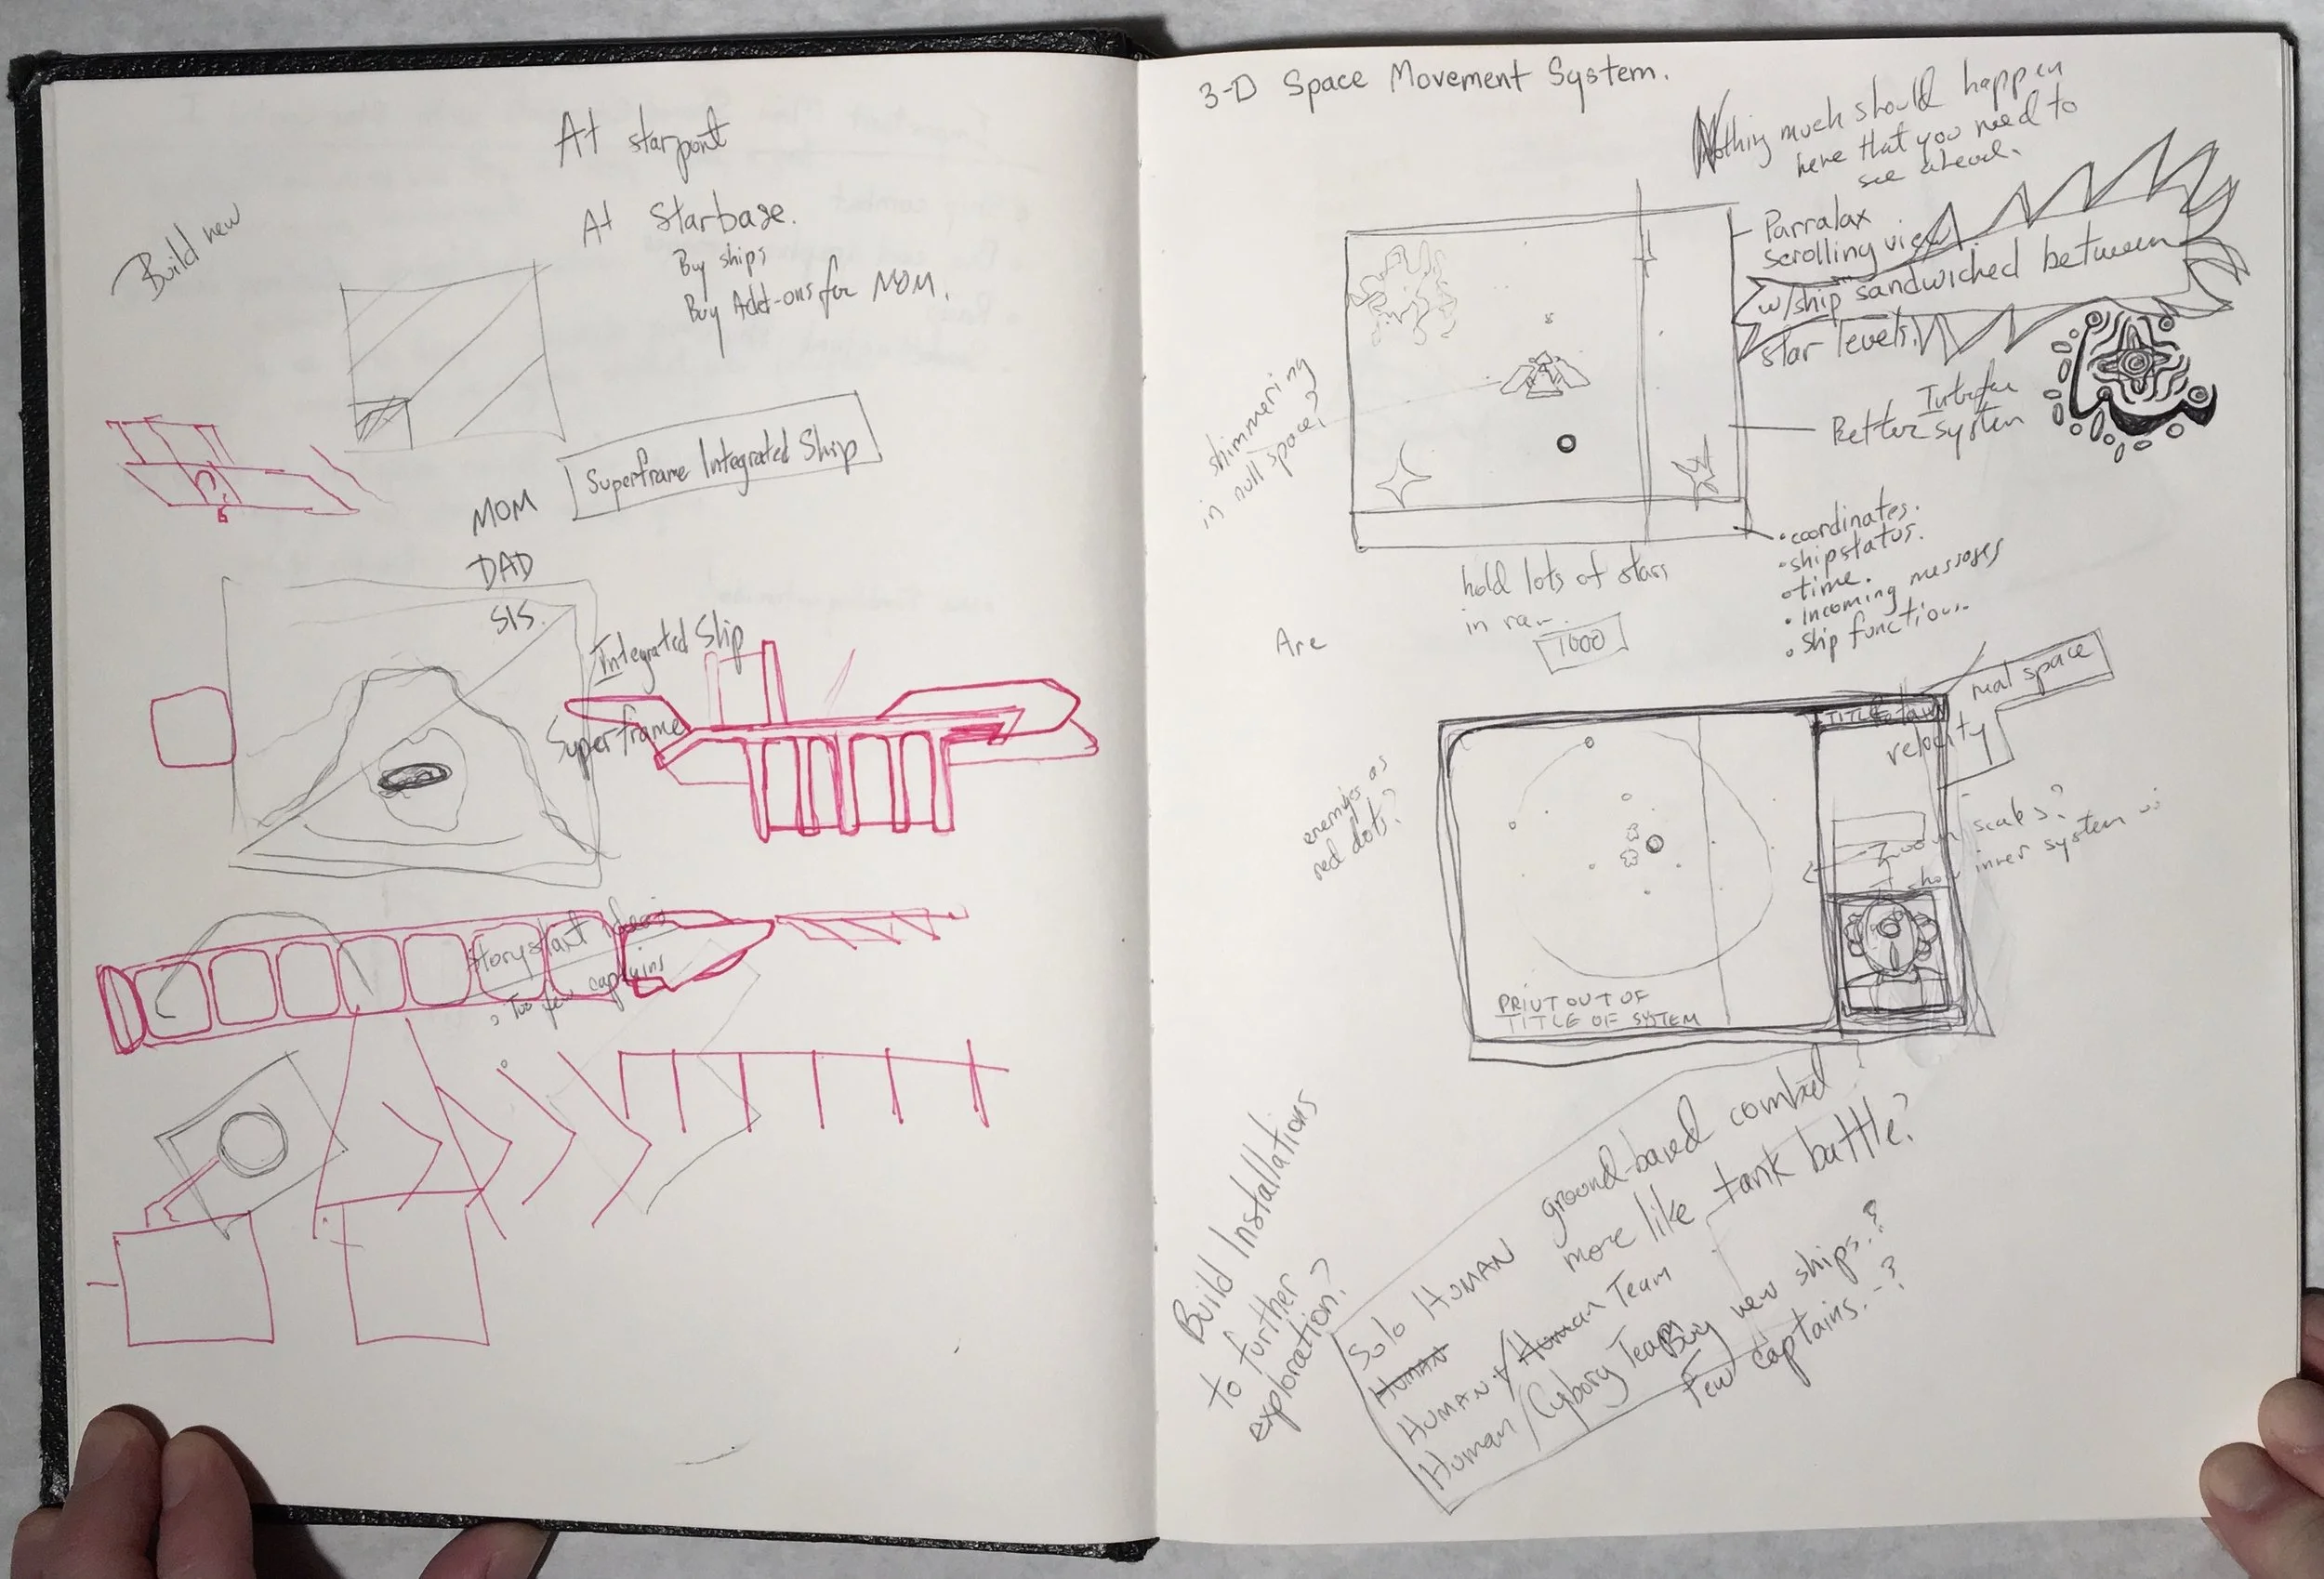 At starport
At Starbase.
Buy ships
Buy Add-ons for MOM.
Build new
Superframe Integrated Ship
MOM
DAD
SIS.
Integrated Ship
Superframe
Storystart ideas
Too few captains
3-D Space Movement System.
Nothing much should happen
here that you need to
see ahead.
Parralax
scrolling view
w/ship sandwiched between
star levels.
Better
system
shimmering
in null space?
• coordinates.
• ship status.
• time.
• Incoming messages
• Ship functions.
hold lots of stars
in ram
1000
Are
real space
velocity
TITLE
enemies as
red dots?
Zoom scales?
show inner system
PRINT OUT OF
TITLE OF SYSTEM
Build Installations
to further
exploration?
ground-based combat?
more like tank battle?
Solo HUMAN
HUMAN
HUMAN / Human Team
Human / Cyborg Team
Buy new ships.?
Few captains.-?